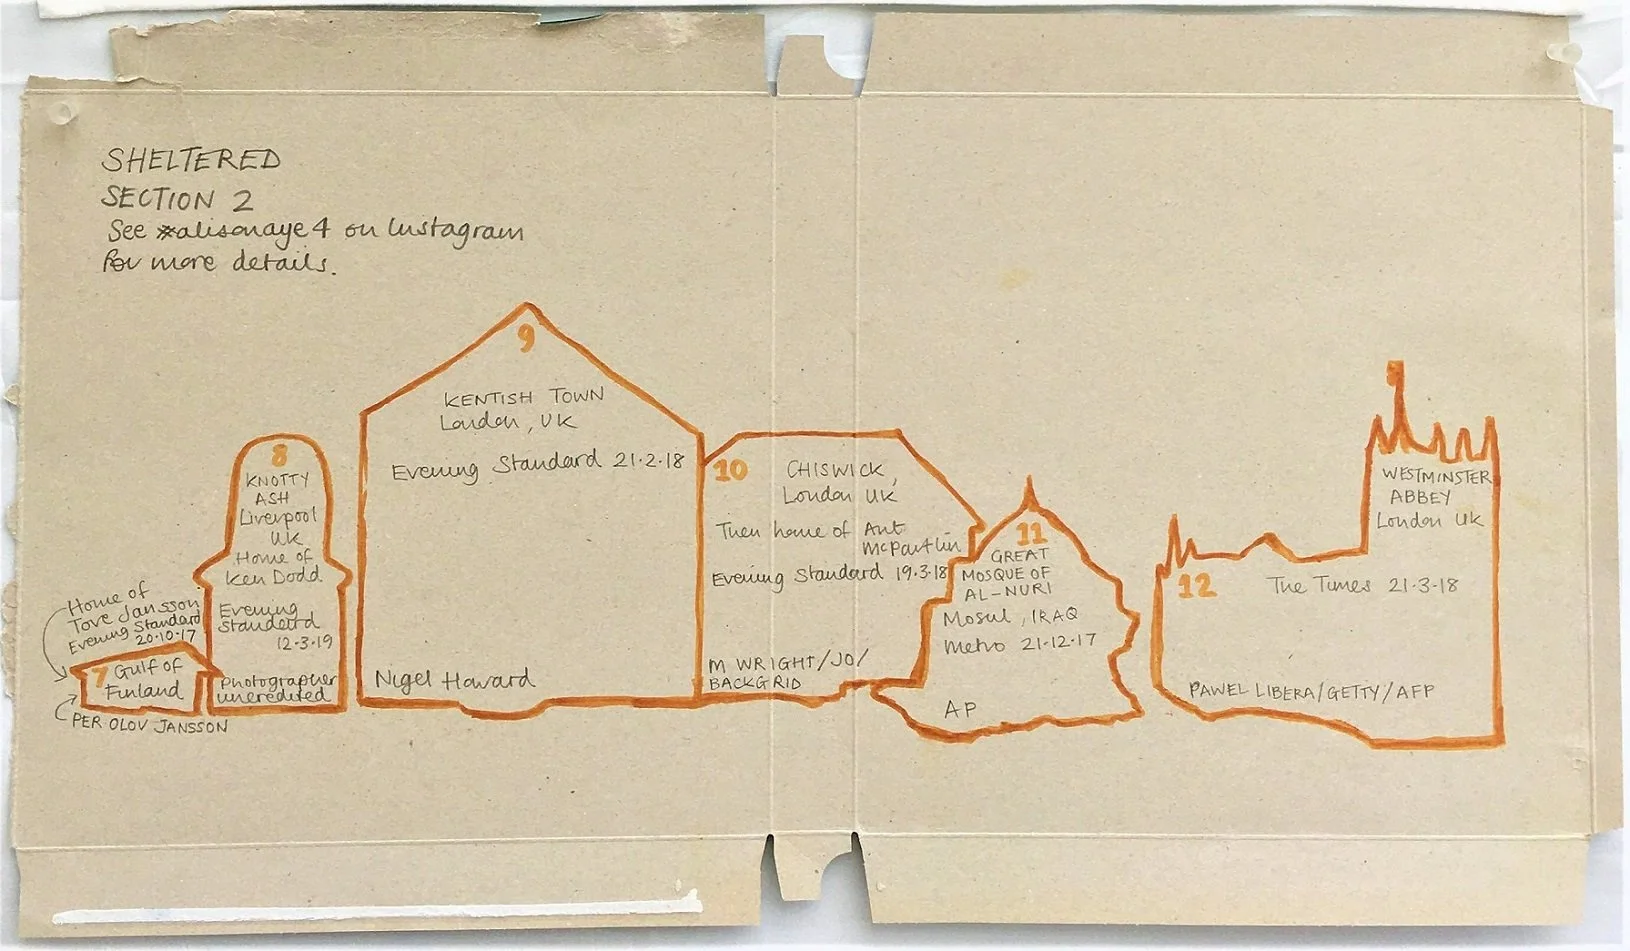 SHELTERED
SECTION 2
See #alisonaye4 on Instagram
for more details.
Home of
Tove Jansson
Evening Standard
20·10·17
7 Gulf of
Finland
PER OLOV JANSSON
8
KNOTTY
ASH
Liverpool
UK
Home of
Ken Dodd
Evening
Standard
12·3·19
photographer
uncredited
9
KENTISH TOWN
London, UK
Evening Standard 21·2·18
Nigel Howard
10 CHISWICK,
London UK
Then home of Ant
McPartlin
Evening Standard 19·3·18
M WRIGHT/JO/
BACKGRID
11
GREAT
MOSQUE OF
AL-NURI
Mosul, IRAQ
Metro 21·12·17
AP
WESTMINSTER
ABBEY
London UK
12 The Times 21·3·18
PAWEL LIBERA/GETTY/AFP